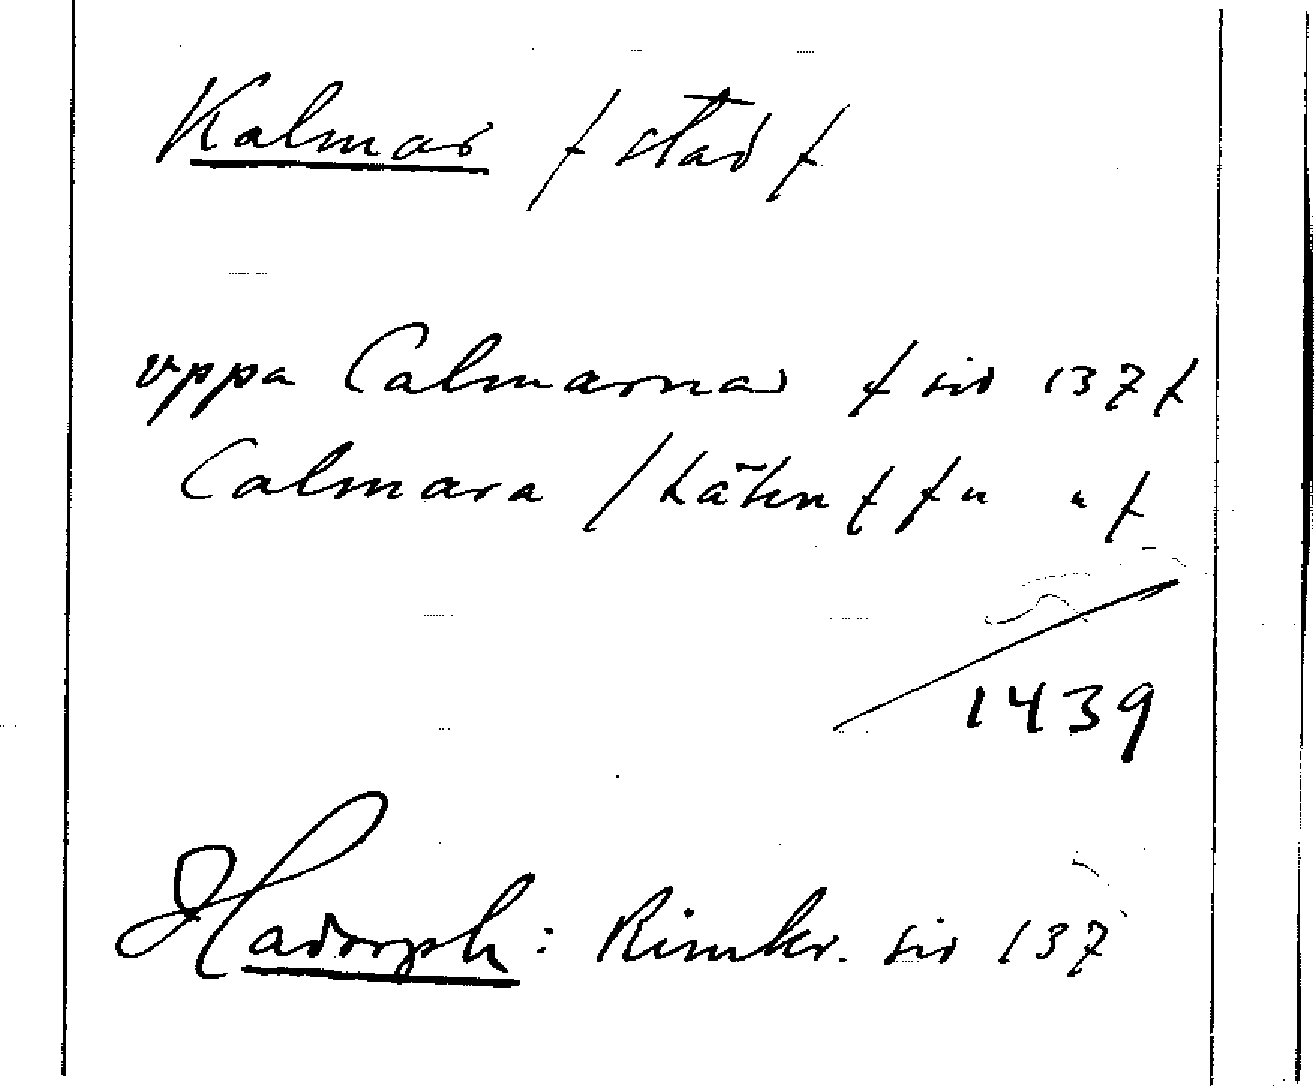 Kalmar / stad /
uppa Calmarnar / sid 137 /
Calmara / Lähn / / " " /
1439
Hadorph: Rimkr. sid 137